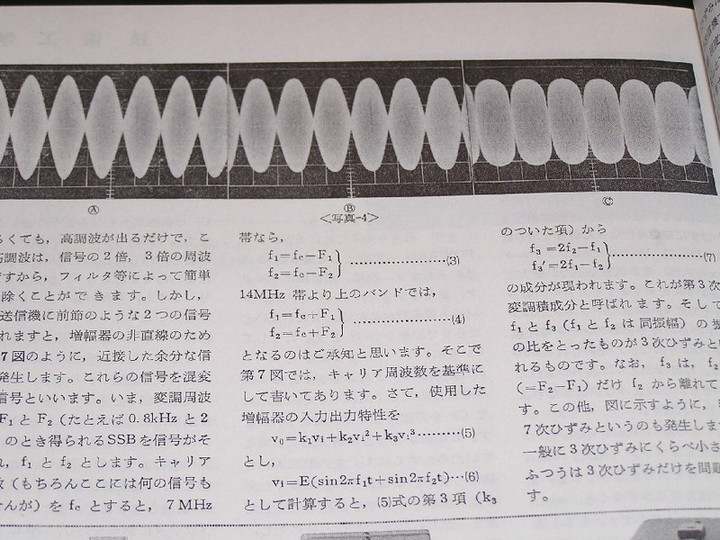 Ⓐ
Ⓑ
Ⓒ
<写真-4>
るくても，高調波が出るだけで，こ
高調波は，信号の2倍，3倍の周波
ですから，フィルタ等によって簡単
除くことができます。しかし，
送信機に前節のような2つの信号
れますと，増幅器の非直線のため
7図のように，近接した余分な信
発生します。これらの信号を混変
信号といいます。いま，変調周波
F₁とF₂（たとえば0.8kHzと2
のとき得られるSSBを信号がそ
れ，f₁とf₂とします。キャリア
数（もちろんここには何の信号も
せんが）をfcとすると，7MHz
帯なら，
f₁=fc−F₁
f₂=fc−F₂ ……(3)
14MHz帯より上のバンドでは，
f₁=fc+F₁
f₂=fc+F₂ ……(4)
となるのはご承知と思います。そこで
第7図では，キャリア周波数を基準に
して書いてあります。さて，使用した
増幅器の入力出力特性を
v₀=k₁vi+k₂vi²+k₃vi³………(5)
とし，
vi=E(sin2πf₁t+sin2πf₂t)…(6)
として計算すると，(5)式の第3項（k₃
のついた項）から
f₃=2f₂−f₁
f₃′=2f₁−f₂ ……(7)
の成分が現われます。これが第3次
変調積成分と呼ばれます。そして
f₁とf₃（f₁とf₂は同振幅）の
の比をとったものが3次ひずみと
れるものです。なお，f₃は，f₂
(=F₂−F₁)だけf₂から離れて
す。この他，図に示すように，
7次ひずみというのも発生しま
一般に3次ひずみにくらべ小さ
ふつうは3次ひずみだけを問題
す。